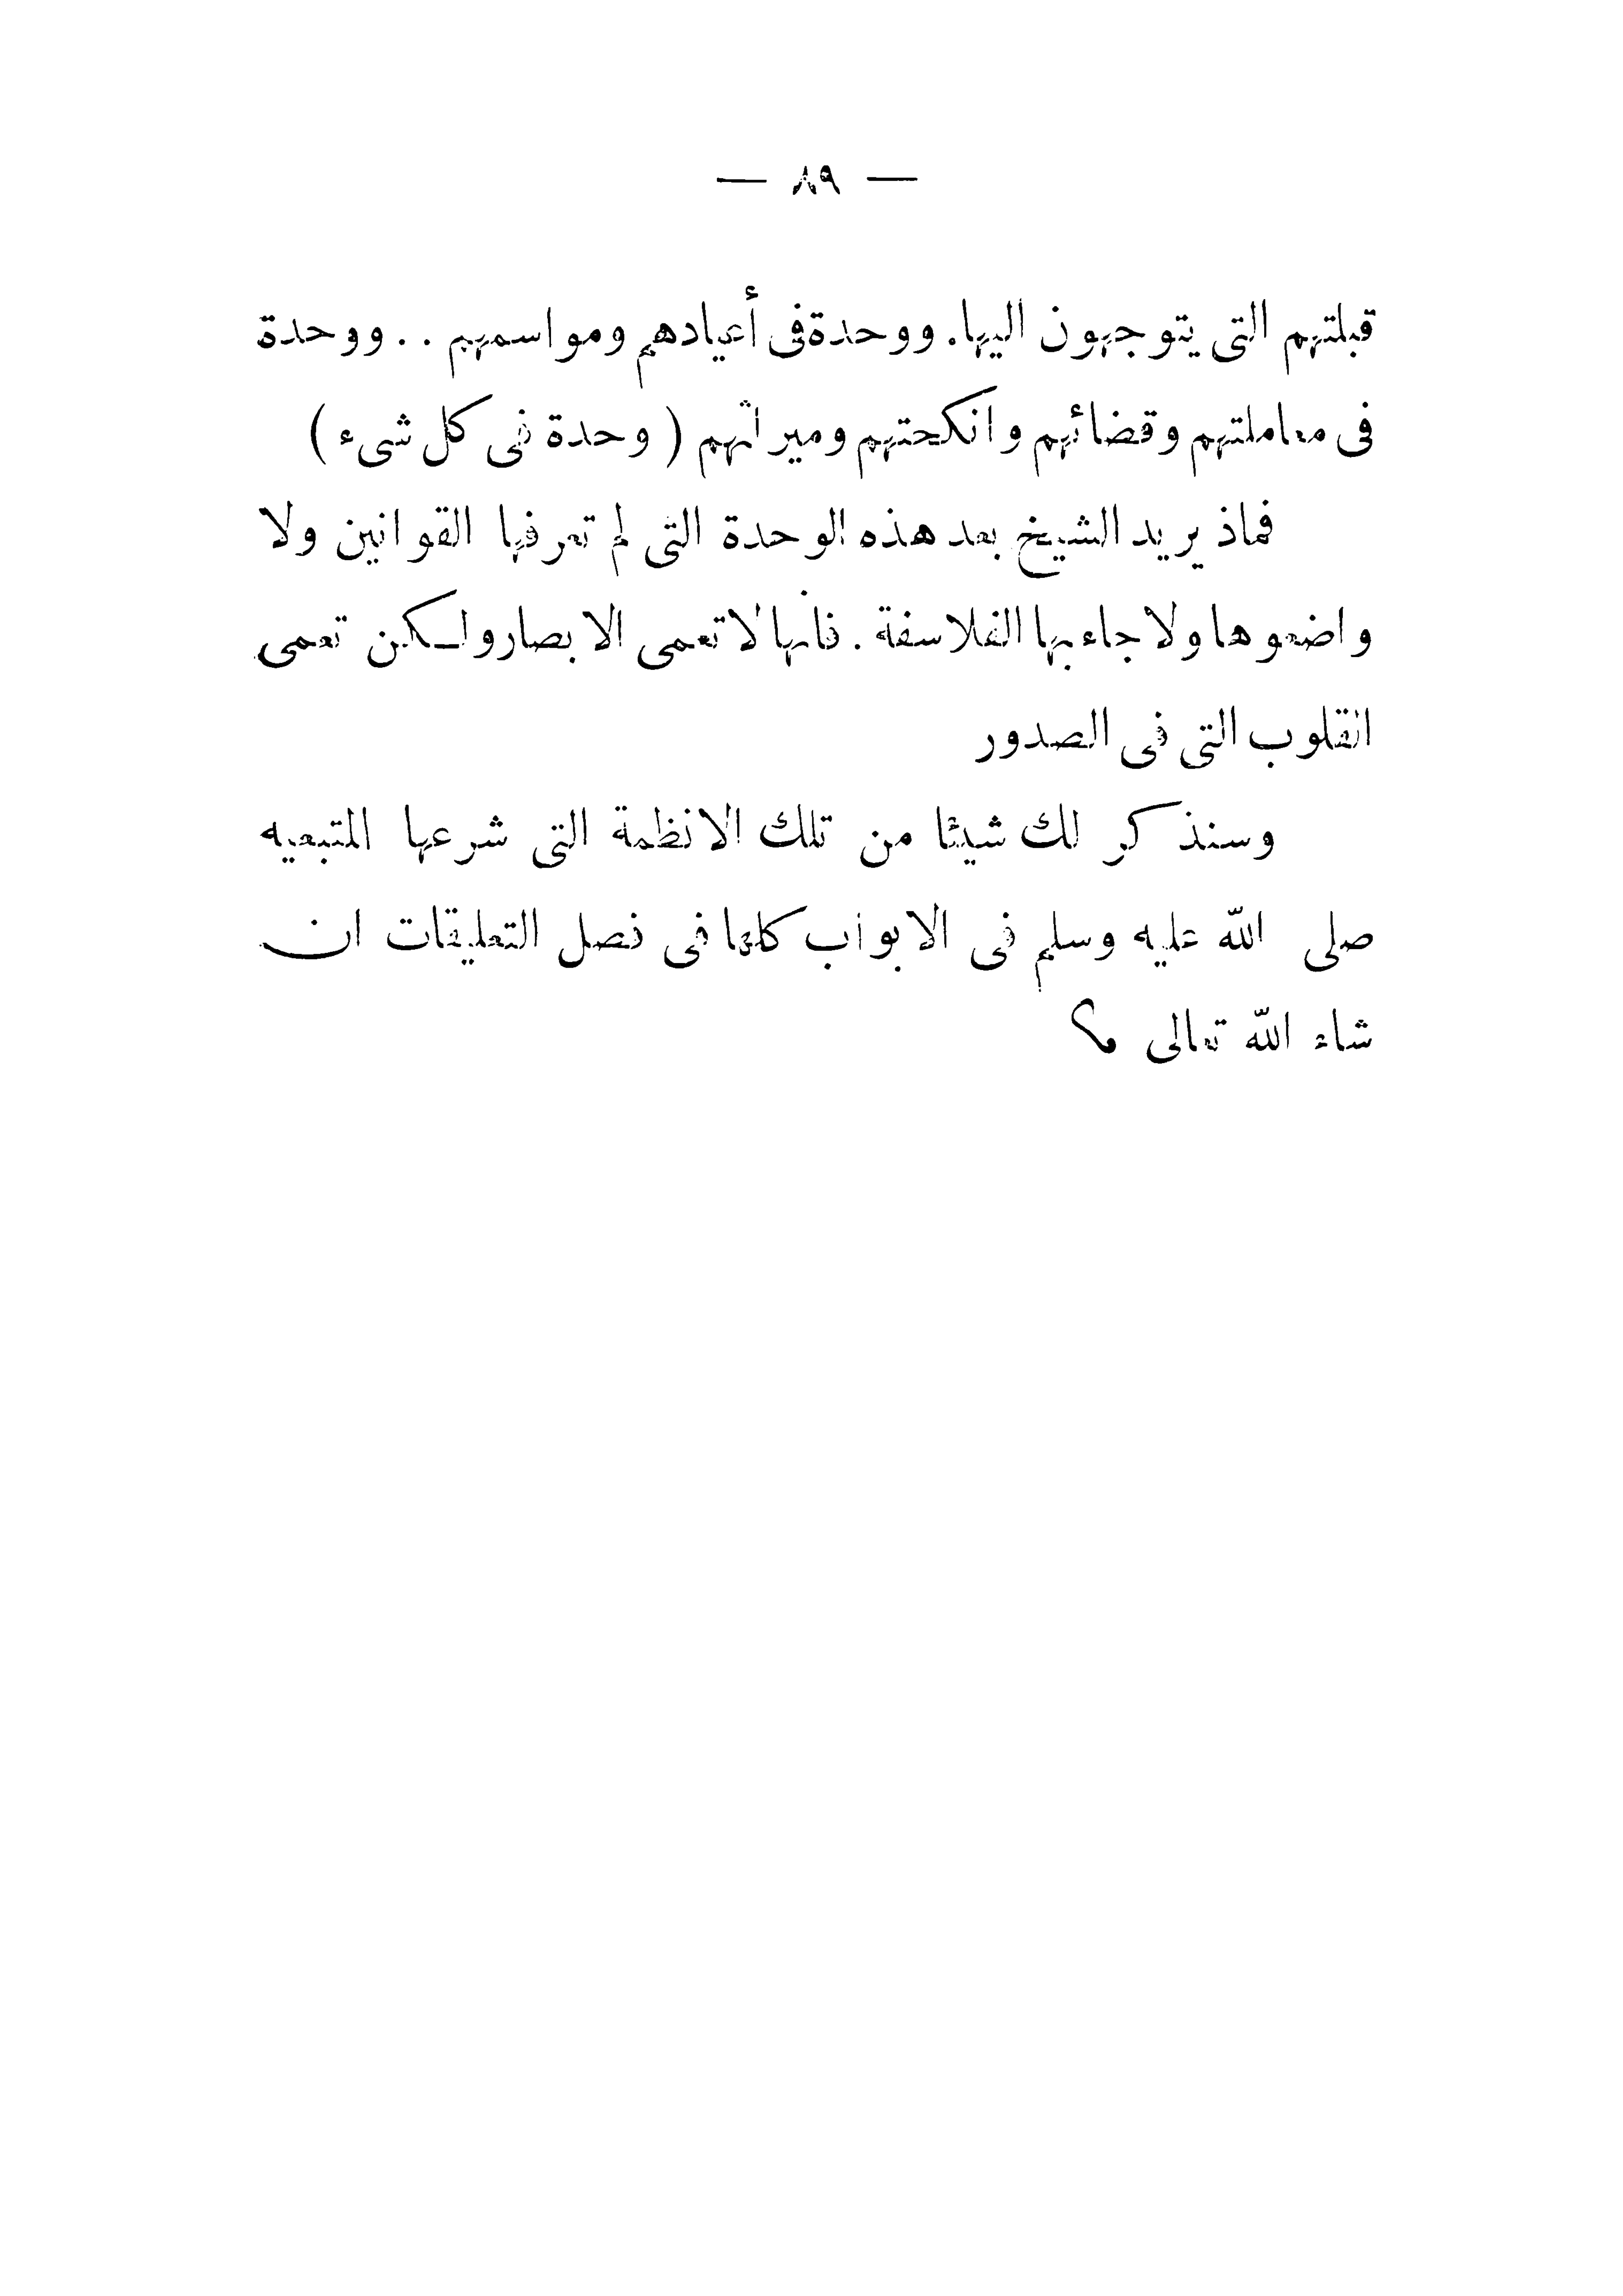 — ٨٩ —
قبلتهم التى يتوجهون اليها. ووحدة فى أعيادهم ومواسمهم . . ووحدة
فى معاملتهم وقضائهم وانكحتهم وميراثهم ( وحدة فى كل شىء )
فماذ يريد الشيخ بعد هذه الوحدة التى لم تعرفها القوانين ولا
واضعوها ولا جاء بها الفلاسفة . فانها لا تعمى الابصار ولكن تعمى
القلوب التى فى الصدور
وسنذكر لك شيئا من تلك الانظمة التى شرعها لمتبعيه
صلى الله عليه وسلم فى الابواب كلها فى فصل التعليقات ان
شاء الله تعالى